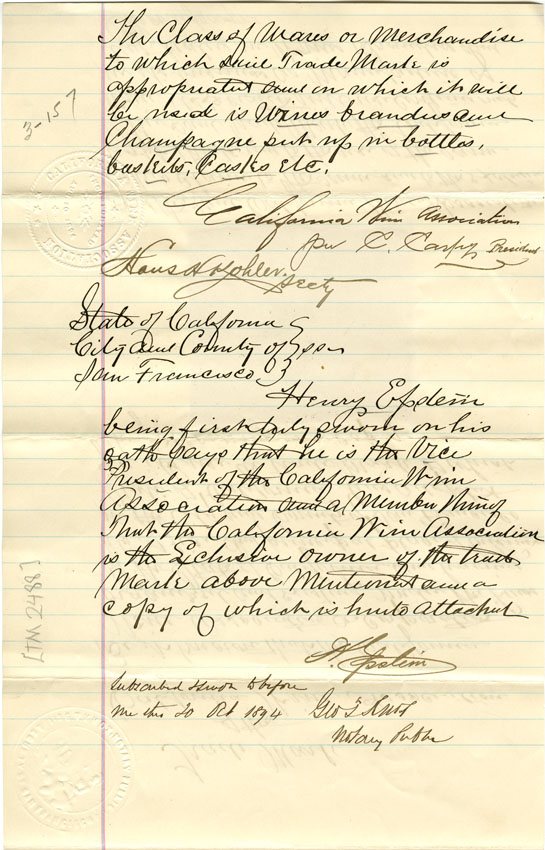 The Class of Wares or Merchandise
to which said Trade Mark is
appropriated and on which it will
be used is Wines brandies and
Champagne put up in bottles,
baskets, Casks etc.
3-157
California Wine Association
per C. Carpy President
Hans H Kohler
Secty
State of California
City and County of ss
San Francisco
Henry Epstein
being first duly sworn on his
oath says that he is the Vice
President of the California Wine
Association and a Member thereof
That the California Wine Association
is the Exclusive owner of the trade
Mark above Mentioned and a
copy of which is hereto attached
[TM 2488]
H. Epstein
Subscribed & sworn to before
me this 20 Oct 1894
Geo T Knox
Notary Public